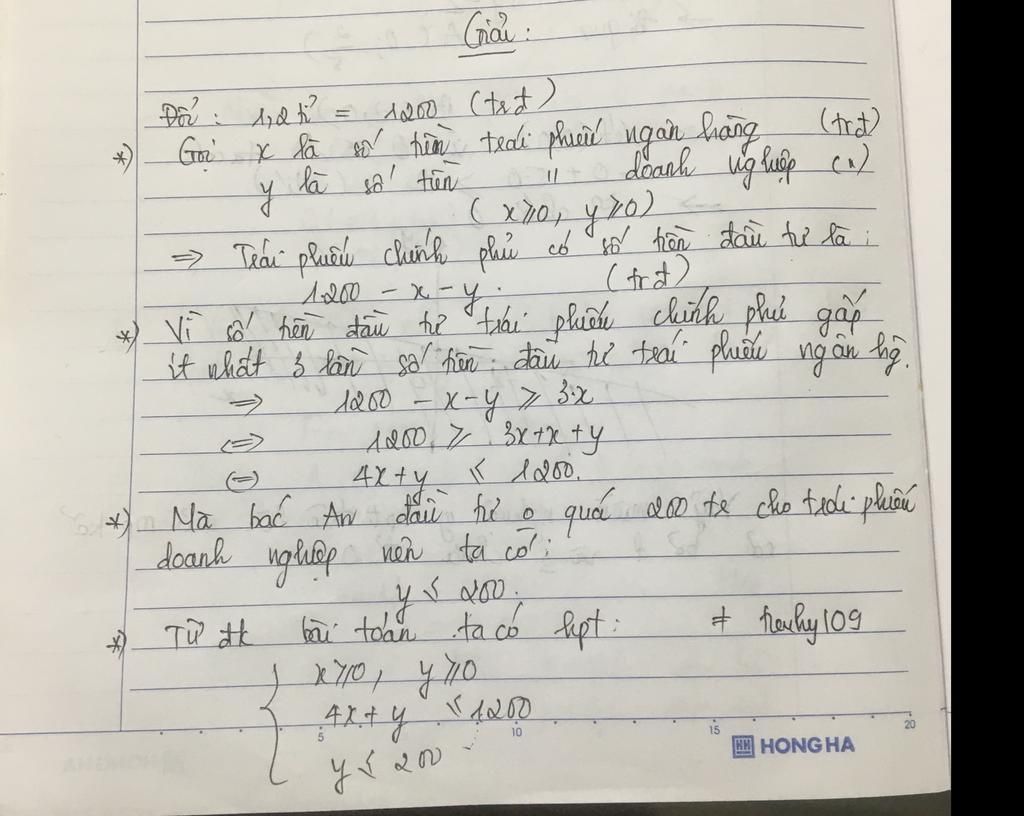 Giải:
Đổi: 1,2 tỉ = 1200 (trđ)
*) Gọi x là số tiền trái phiếu ngân hàng (trđ)
y là số tiền " doanh nghiệp (")
(x ⩾ 0, y ⩾ 0)
⇒ Trái phiếu chính phủ có số tiền đầu tư là:
1200 - x - y. (trđ)
*) Vì số tiền đầu tư trái phiếu chính phủ gấp
ít nhất 3 lần số tiền đầu tư trái phiếu ngân hg.
⇒ 1200 - x - y ⩾ 3.x
⇔ 1200 ⩾ 3x + x + y
⇔ 4x + y ⩽ 1200.
*) Mà bác An đầu tư o quá 200 tr cho trái phiếu
doanh nghiệp nên ta có:
y ⩽ 200.
*) Từ đk bài toán ta có hpt:
x ⩾ 0, y ⩾ 0
4x + y ⩽ 1200
y ⩽ 200
5 10 15 20
HONG HA